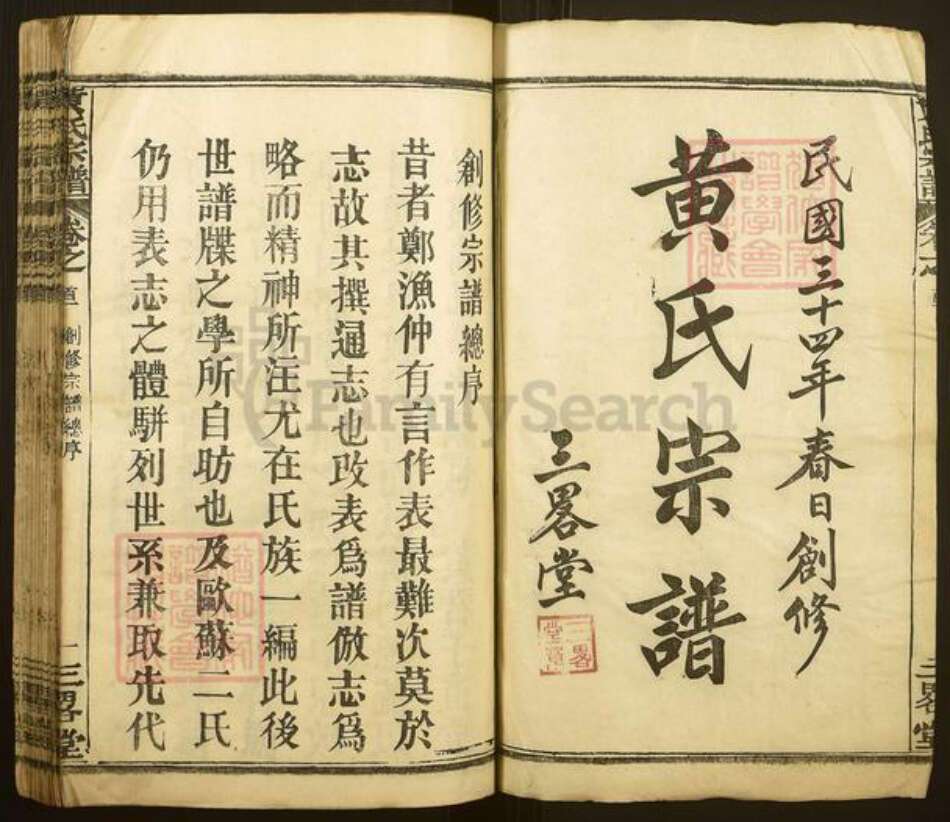 民國三十四年春日創修
黃氏宗譜
三畧堂
創修宗譜總序
昔者鄭漁仲有言作表最難次莫於
志故其撰通志也改表為譜倣志為
略而精神所注尤在氏族一編此後
世譜牒之學所自昉也及歐蘇二氏
仍用表志之體駢列世系兼取先代
黃氏宗譜
卷之首
創修宗譜總序
三畧堂
三畧堂
FamilySearch